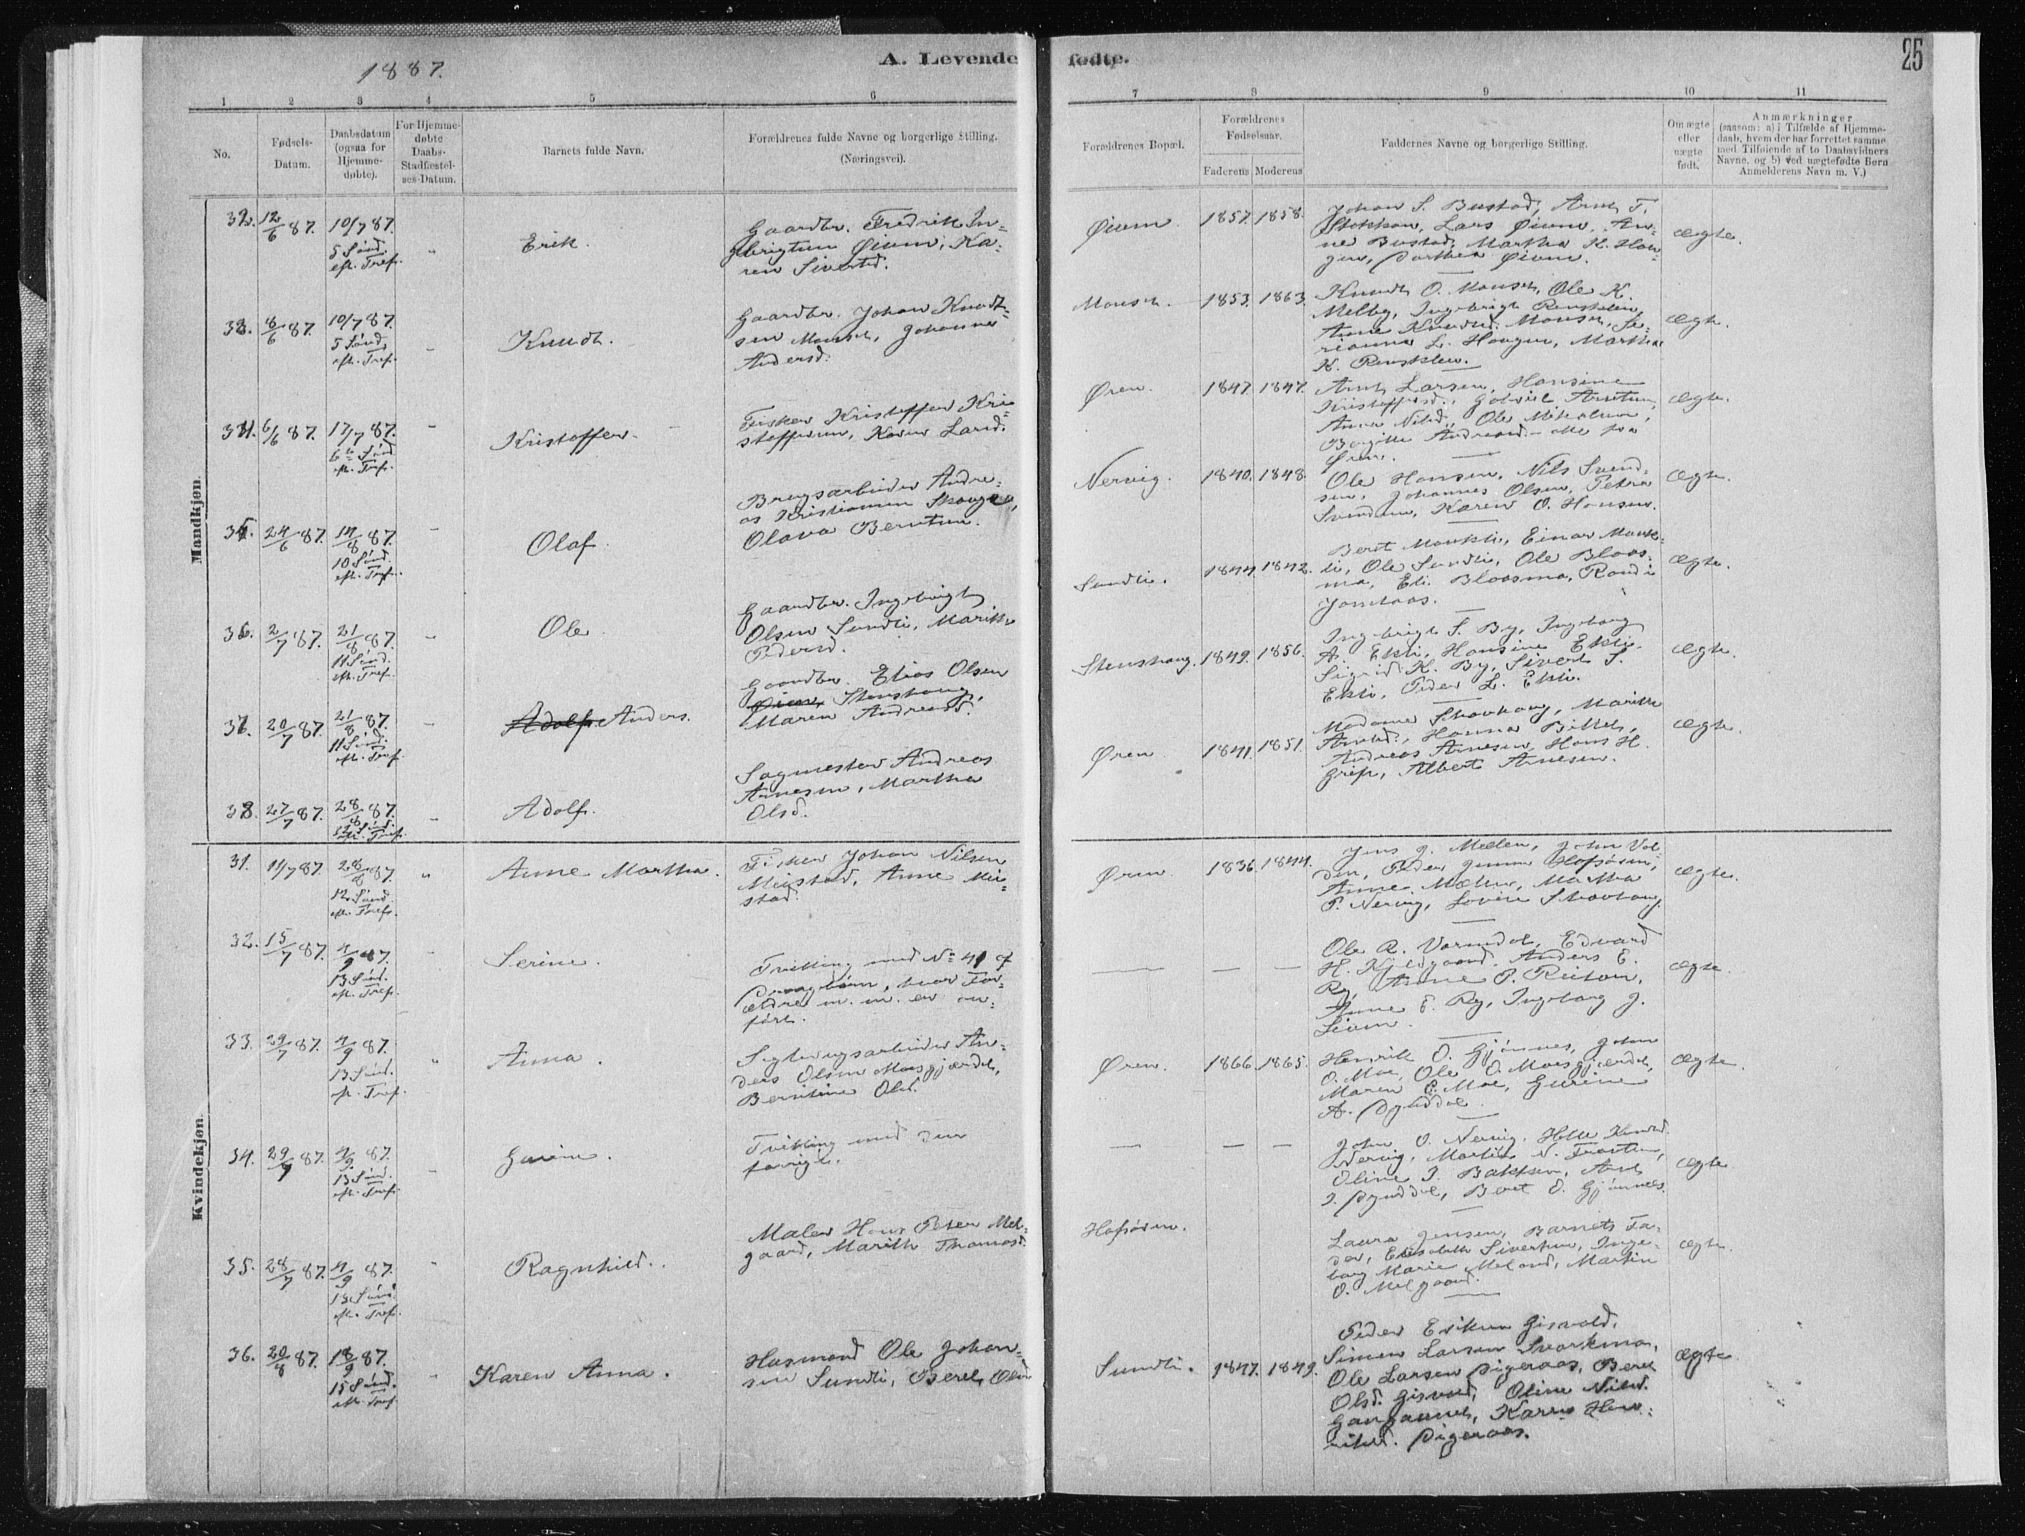 1887.
A. Levende
fødte.
25
1 2 3 4 5 6 7 8 9 10 11
No.
Fødsels-
Datum.
Daabsdatum
(ogsaa for
Hjemme-
døbte).
For Hjemme-
døbte
Daabs-
Stadfæstel-
ses-Datum.
Barnets fulde Navn.
Forældrenes fulde Navne og borgerlige Stilling.
(Næringsvei).
Forældrenes Bopæl.
Forældrenes
Fødselsaar.
Faderens Moderens
Faddernes Navne og borgerlige Stilling.
Om ægte
eller
uægte
født.
Anmærkninger
(saasom: a) i Tilfælde af Hjemme-
daab, hvem der har forrettet samme
med Tilføiende af to Daabsvidners
Navne, og b) ved uægtefødte Børn
Anmelderens Navn m. V.)
Mandkjøn.
32. 12/6 87. 10/7 87.
5 Sønd.
eft. Tref.
Erik.
Gaardbr. Fredrik In-
gbrigtsen Øium, Ka-
ren Sivertsd.
Øium 1857. 1858.
Johan S. Bustad, Arnt T.
Stokkan, Lars Øium, An-
ne Bustad, Martha K. Hau-
gen, Dorthea Øium.
Ægte.
33. 8/6 87. 10/7 87.
5 Sønd.
eft. Tref.
Knudt.
Gaardbr. Johan Knudt-
sen Monset, Johanna
Andersd.
Monset. 1853. 1863.
Knudt O. Monset, Ole K.
Melby, Ingebrigt
Anne Knudtsd. Monset,
L. Haugen, Martha
K.
Ægte.
34. 6/6 87. 17/7 87.
6te Sønd.
eft. Tref.
Kristoffer
Fisker Kristoffer Kri-
stoffersen, Karen Larsd.
Øren. 1847. 1847.
Arnt Larsen, Hansine
Kristoffersd., Gabriel Arntsen,
Anna Nilsd., Ole Mikalsen,
Bergitte Andreasd. alle fra
Øren.
Ægte.
35. 24/6 87. 14/8 87.
10 Sønd.
eft. Tref.
Olaf.
Brugsarbeider Andre-
as Kristiansen Skaugen,
Olava Berntsen.
Nervig. 1840. 1848.
Ole Hansen, Nils Svend-
sen, Johannes Olsen, Petra
Svendsen, Karen O. Hansen.
Ægte.
36. 2/7 87. 21/8 87.
11 Sønd.
eft. Tref.
Ole.
Gaardbr. Ingebrigt
Olsen Sundli, Marith
Pedersd.
Sundli. 1844. 1842.
Beret Monkli, Einar Monk-
li, Ole Sundli, Ole Blaas-
mo, Eli Blaasmo, Randi
Ægte.
37. 20/7 87. 21/8 87.
11 Sønd.
eft. Tref.
Adolf. Anders.
Gaardbr. Elias Olsen
Øien, Stenshaug,
Maren Andreasd.
Stenshaug. 1849. 1856.
Ingebrigt S. By, Ingeborg
A. Ekli, Hansine Ekli,
Sigrid K. By, Sivert S.
Ekli, Peder L. Ekli.
Ægte.
38. 27/7 87. 28/8 87.
12 Sønd.
eft. Tref.
Adolf.
Sagmester Andreas
Arnesen, Martha
Olsd.
Øren 1841. 1851.
Madame Skovhaug, Marith
Arntsd., Hanna
Andreas Arnesen, Hans H.
Grip, Albert Arnesen.
Ægte.
Kvindekjøn.
31. 14/7 87. 28/8 87.
12 Sønd.
eft. Tref.
Anne Martha.
Fisker Johan Nilsen
Mistad, Anne Mi-
stad.
Øren 1836. 1844.
Jens J. Mælen, John Vol-
den, Peder Hofsøren,
Anne Mælen, Martha
P. Nervig, Lovise Skovhaug.
Ægte.
32. 15/7 87. 4/9 87.
13 Sønd.
eft. Tref.
Serine.
Tvilling med No 41 af
Drengbørn, hvor For-
ældre m. m. er an-
ført.
Ole R. Vormdal, Edvard
H. Anders E.
Ry, Anne P. Reitan,
Anne E. Ry, Ingeborg J.
Ægte.
33. 29/7 87. 4/9 87.
13 Sønd.
eft. Tref.
Anna.
Anders Olsen Moesgjærdet,
Berntine Olsd.
Øren 1866. 1865.
Henrik O. Gjønnes, John
O. Moe, Ole O. Moesgjærdet,
Maren E. Moe, Gurine
A. Dynddal.
Ægte.
34. 29/7 87. 4/9 87.
13 Sønd.
eft. Tref.
Gurine.
Tvilling med den
forrige.
John O. Nervig,
Nervig, Martin N.
Oline J. Bakksen, Arnt
J. Dynddal, Beret O. Gjønnes.
Ægte
35. 28/7 87. 4/9 87.
13 Sønd.
eft. Tref.
Ragnhild.
Maler Hans Peter Mel-
gaard, Marith Thomasd.
Hofsøren.
Laura Jensen, Barnets Fa-
der, Elisabeth Sivertsen, Inge-
borg Marie Meland, Martin
O. Melgaard.
Ægte.
36. 20/8 87. 18/9 87.
15 Sønd.
eft. Tref.
Karen Anna.
Husmand Ole Johan-
sen Sundli, Beret Olsd
Sundli. 1847. 1849.
Peder Eriksen Gisvold,
Simen Larsen Svorkmo,
Ole Larsen Digeraas, Beret
Olsd. Gisvold, Oline Nilsd.
Karen Hen-
riksd. Digeraas.
Ægte